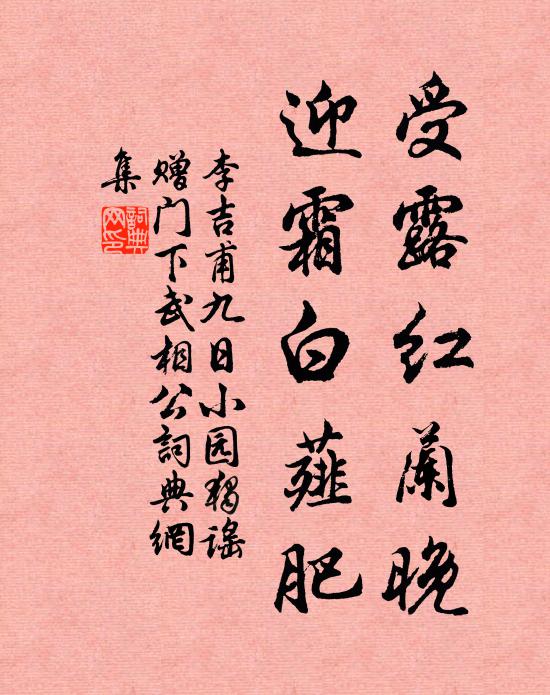 受露红兰晚
迎霜白薤肥
李吉甫九日小园独谣
赠门下武相公詞典網
集
詞典网印